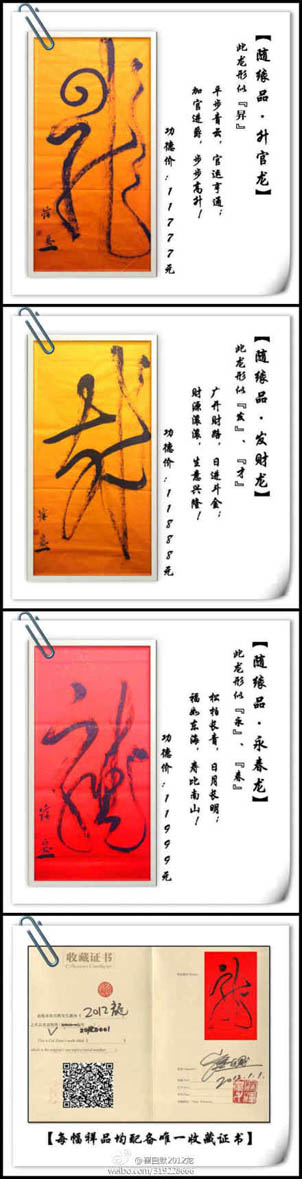 【随缘品·升官龙】
此龙形似『昇』
平步青云，官运亨通；
加官进爵，步步高升！
功德价：11777元
【随缘品·发财龙】
此龙形似『发』、『才』
广开财路，日进斗金；
财源滚滚，生意兴隆！
功德价：11888元
【随缘品·永春龙】
此龙形似『永』、『春』
松柏长青，日月长明；
福如东海，寿比南山！
功德价：11999元
收藏证书
2012龙
【每幅祥品均配备唯一收藏证书】
@崔自默2012龙
weibo.com/519228666